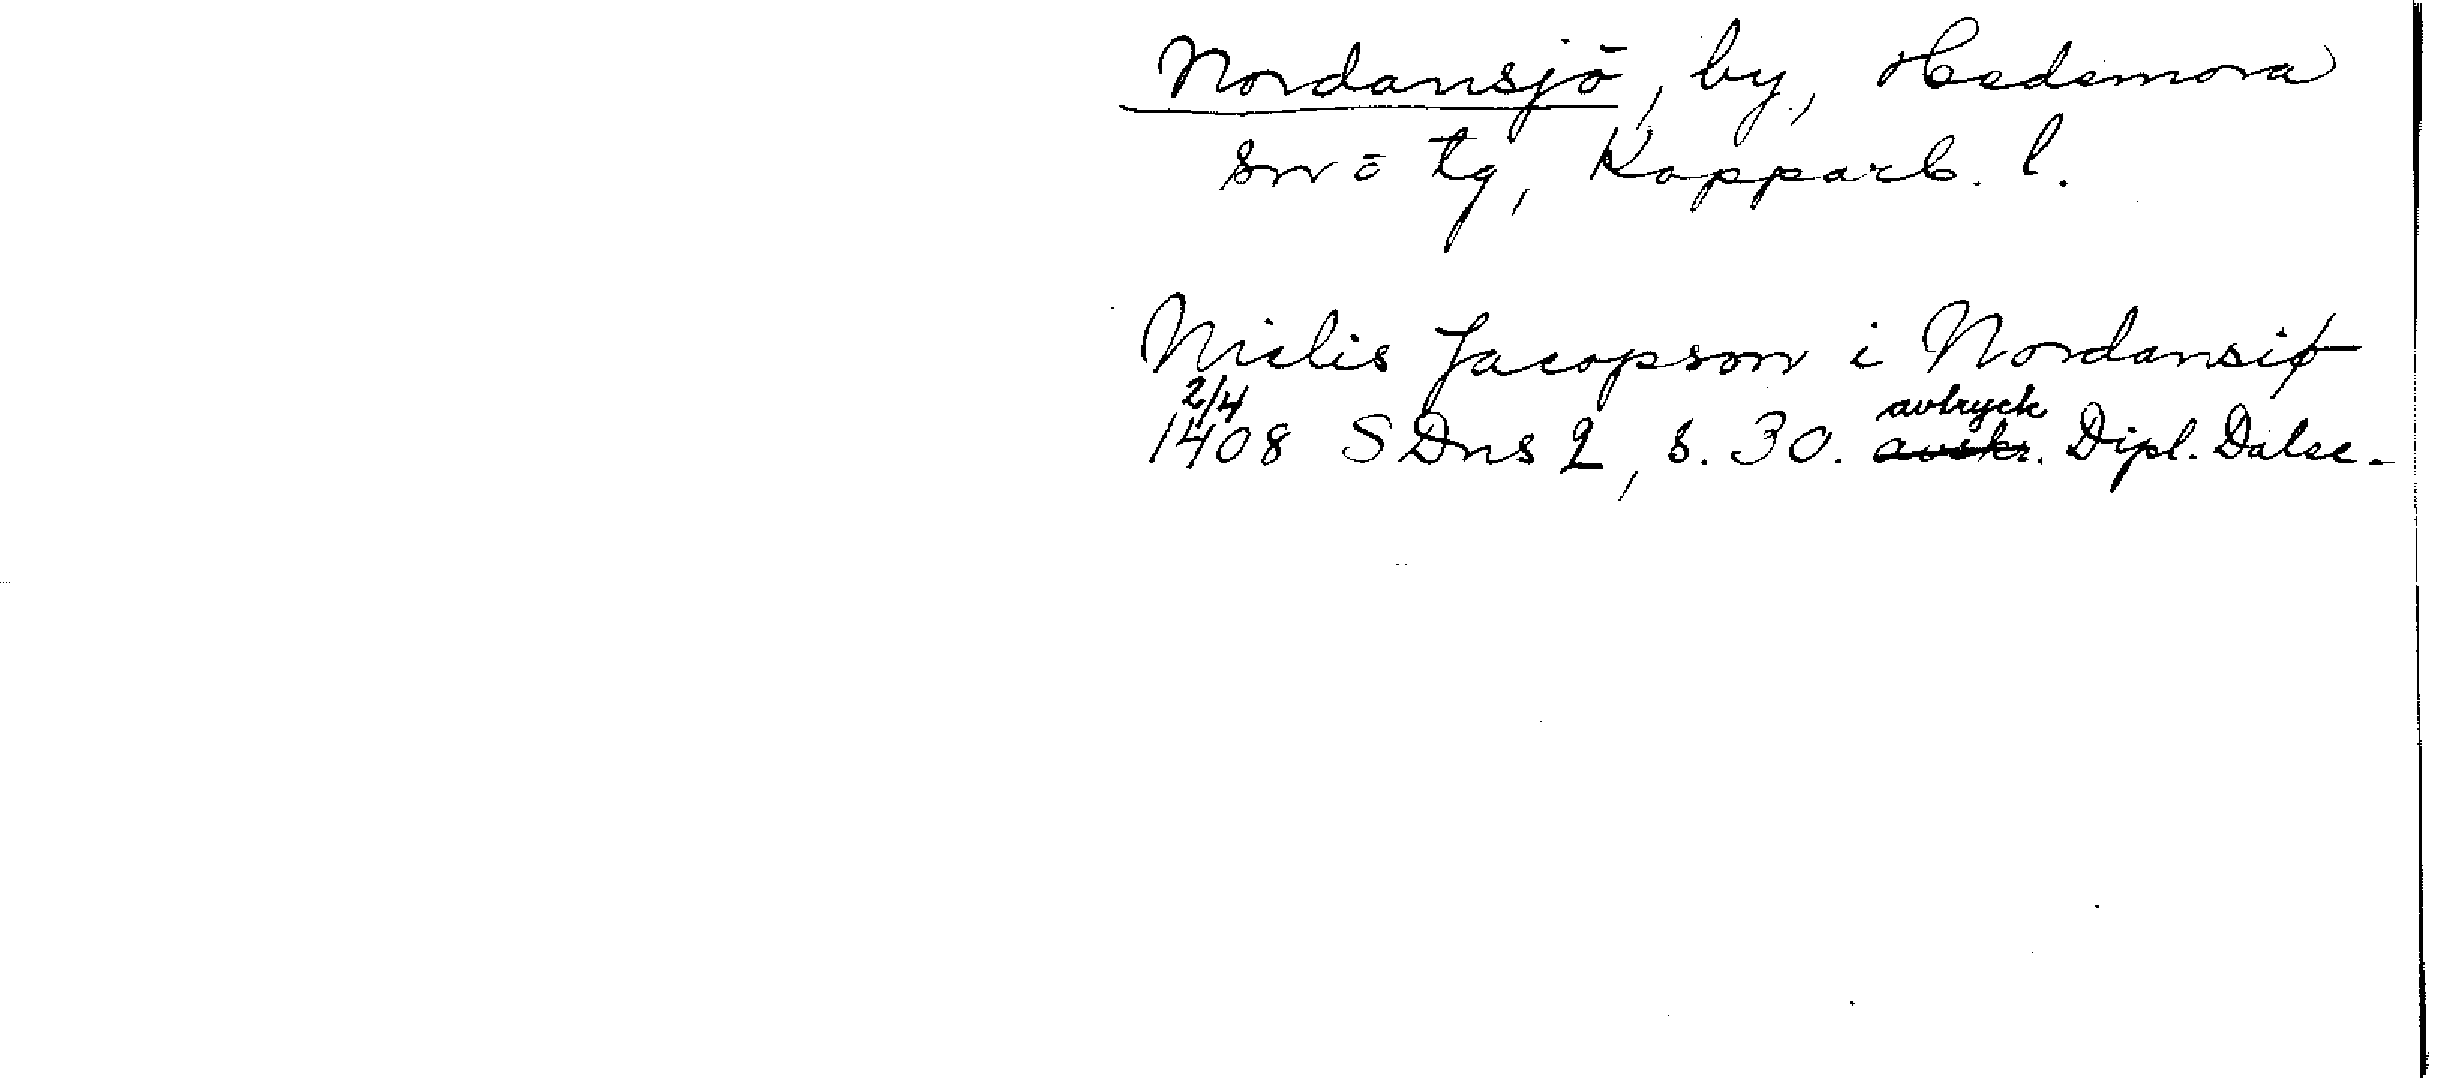 Nordansjö, by, Hedemora
sn o tg, Kopparb. l.
Nielis Jacopson i Nordansiø
2/4
avtryck
1408 SDns 2, s. 30. avskr. Dipl. Dalec.